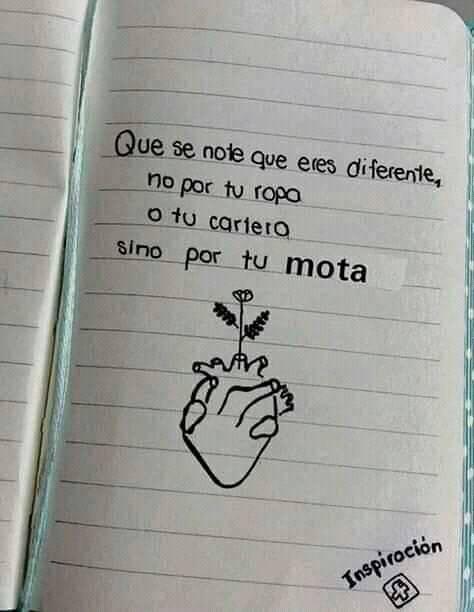 Que se note que eres diferente,
no por tu ropa
o tu cartera
sino por tu mota
Inspiración